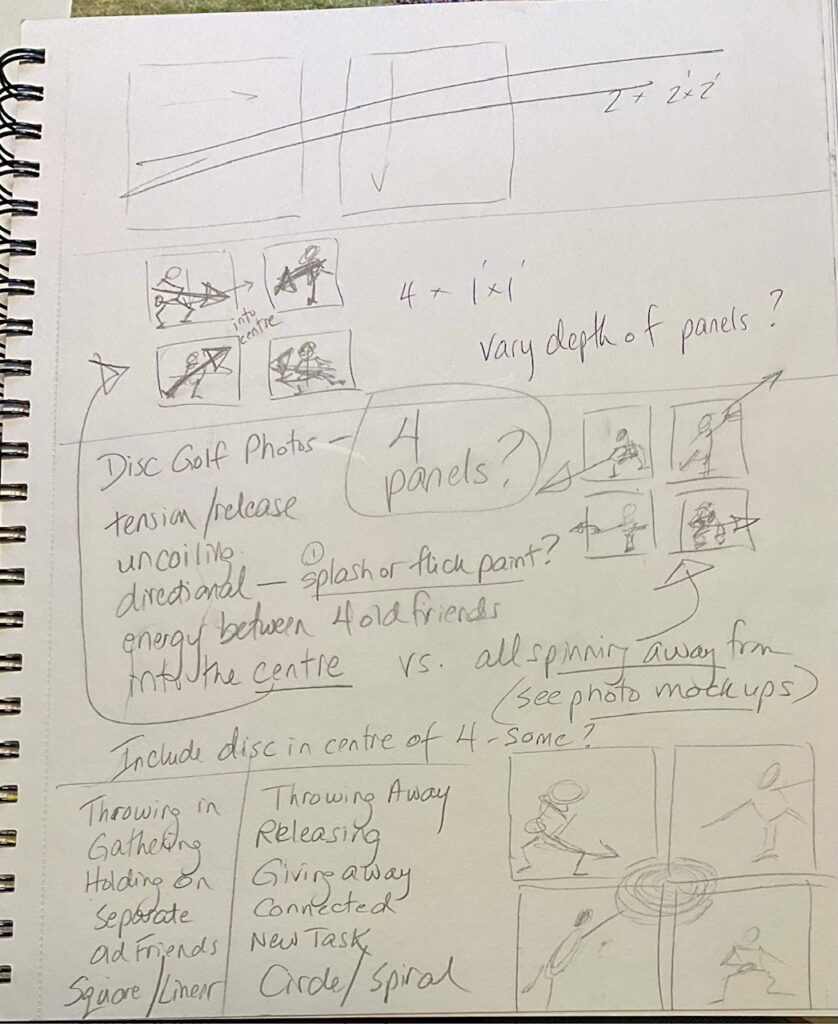 2 + 2'x2'
into
centre
4 + 1'x1'
vary depth of panels?
Disc Golf Photos - 4
panels?
tension/release
uncoiling
directional - ① splash or flick paint?
energy between 4 old friends
into the centre vs. all spinning away from
(see photo mockups)
Include disc in centre of 4-some?
Throwing in Throwing Away
Gathering Releasing
Holding on Giving away
Separate Connected
old Friends New Task
Square/Linear Circle/Spiral